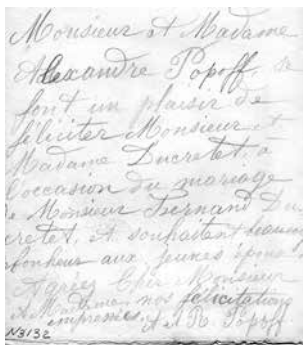 Monsieur et Madame
Alexandre Popoff, se
font un plaisir de
féliciter Monsieur et
Madame Ducretet, à
l'occasion du mariage
de Monsieur Fernand Du
cretet, et souhaitent beaucoup
bonheur aux jeunes époux
Agréez Cher Monsieur
et Madame, nos félicitations
empressées, et A. Popoff
N3132